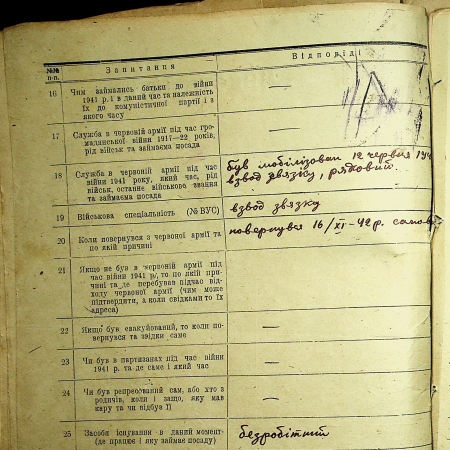 №№ п-п. Запитання Відповіді
16 Чим займались батьки до війни
1941 р. і в даний час та належність
їх до комуністичної партії і з
якого часу —
17 Служба в червоній армії під час гро-
мадянської війни 1917—22 років,
рід військ та займаєма посада —
18 Служба в червоній армії під час
війни 1941 року, який час, рід
військ, останнє військове звання
та займаєма посада
був мобілізован 12 червня
взвод звязку, рядковий.
19 Військова спеціальність (№ ВУС) взвод звязку
20 Коли повернувся з червоної армії та
по якій причині
повернувся 16/XI-42 р.
21 Якщо не був в червоній армії під
час війни 1941 р., то по якій при-
чині та де перебував підчас від-
ходу червоної армії (чим може
підтвердити, а коли свідками то їх
адреса) —
22 Якщо був евакуйований, то коли по-
вернувся та звідки саме —
23 Чи був в партизанах під час війни
1941 р. та де саме і який час —
24 Чи був репресований сам, або хто з
родичів, коли і защо, яку мав
кару та чи відбув її —
25 Засоби існування в даний момент
(де працює і яку займає посаду) безробітний